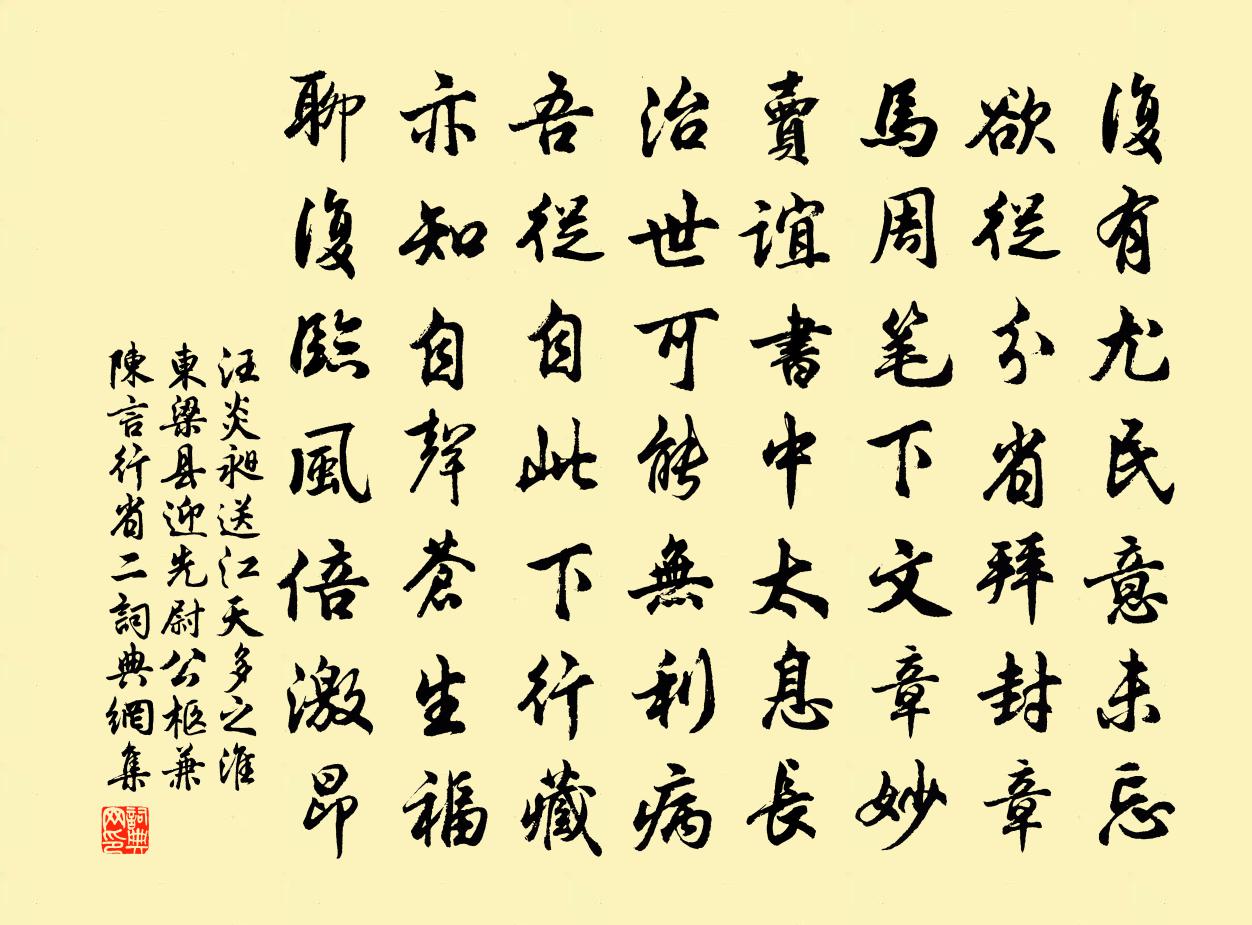 復有尤民意未忘
欲從分省拜封章
馬周笔下文章妙
賣誼書中太息長
治世可能無利病
吾從自此下行藏
亦知自聲蒼生福
聊復臨風倍激昂
汪炎昶送江天多之淮
東梁县迎先尉公柩兼
陳言行省二詞典網集
詞典网印